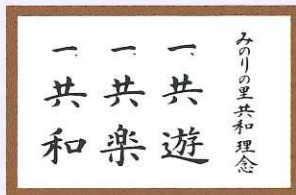 みのりの里 共和 理念
一、共遊
一、共楽
一、共和